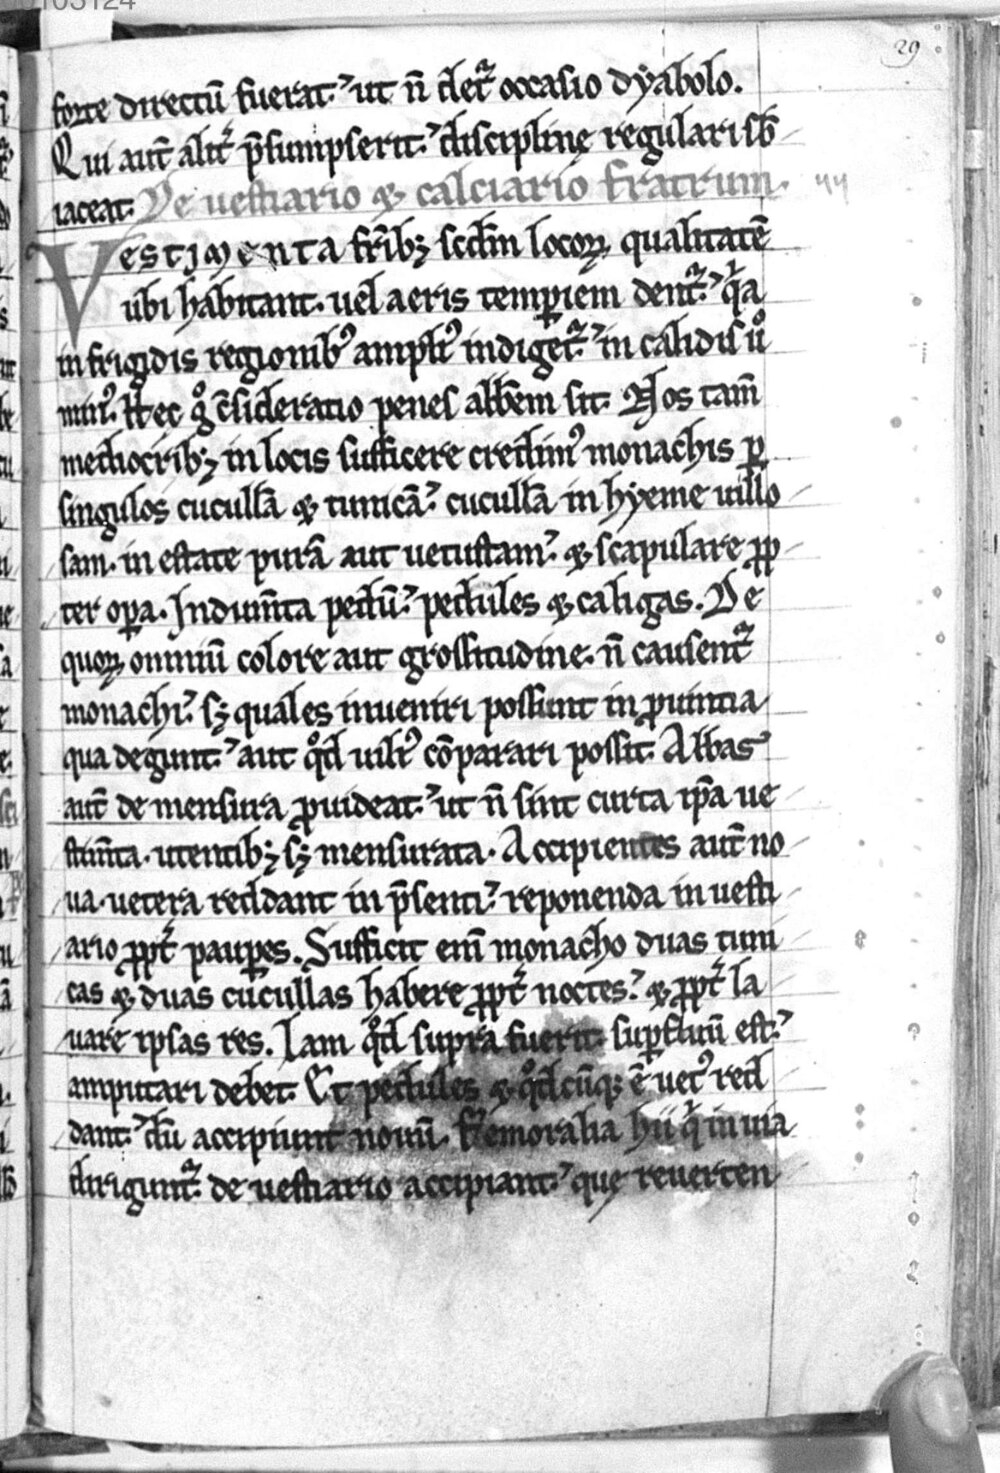 29
forte directū fuerat. ut n̄ det᷑ occasio dyabolo.
Qui aut̄ alit̄ p̄sumpserit. disciplinę regulari sb̄
iaceat. De uestiario & calciario fratrum. 44
Vestimenta fr̄ibꝫ scd̄m locoꝝ qualitatē
ubi habitant. uel aeris temꝑiem dent᷑. qͥa
in frigidis regionibꝰ ampliꝰ indiget᷑. in calidis uͦ
minꝰ. Hec gͦ c̄sideratio penes abb̄em sit. Nos tam̄
mediocribꝫ in locis sufficere credimꝰ monachis ꝑ
singulos cucullā & tunicā. cucullā in hyeme uillo
sam. in estate purā aut uetustam. & scapulare ꝓp
ter oꝑa. Indum̄ta pedū. pedules & caligas. De
quoꝝ omniū colore aut grossitudine. n̄ causent᷑
monachi. sꝫ quales inueniri possunt in ꝓuintia
qua degunt. aut qͦd uiliꝰ cōparari possit. Abbas
aut̄ de mensura ꝓuideat. ut n̄ sint curta ip̄a ue
stim̄ta. utentibꝫ sꝫ mensurata. Accipientes aut̄ no
ua. uetera reddant in p̄senti. reponenda in uesti
ario ꝓpt̄ pauꝑes. Sufficit enī monacho duas tuni
cas & duas cucullas habere ꝓpt̄ noctes. & ꝓpt̄ la
uare ipsas res. Iam qͦd supra fuerit. suꝑfluū est.
amputari debet. Et pedules & qͦdcūqꝫ ē uetꝰ red
dant. dū accipiunt nouū. Femoralia hii qͥ in uia
dirigunt᷑. de uestiario accipiant. quę reuerten